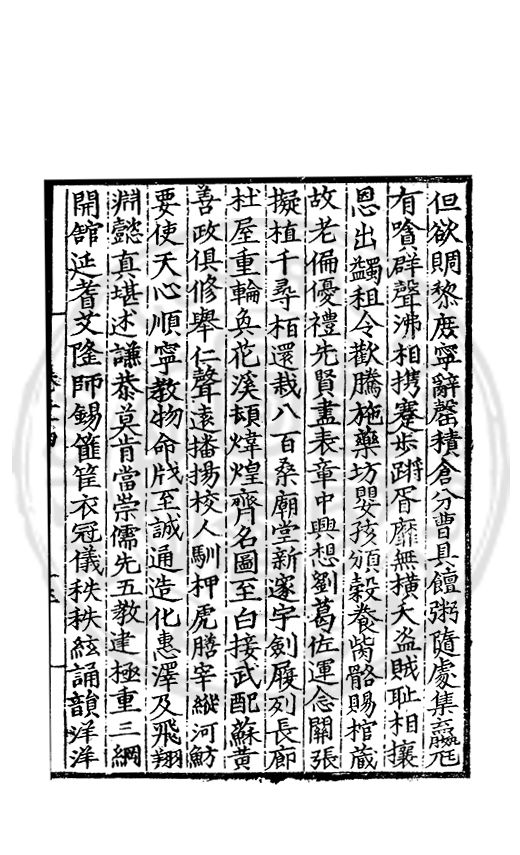 但欲賙黎庶寧辭罄積倉分曹具饘粥隨處集羸尪
有喰群聲沸相携蹇步蹡胥靡無橫夭盗賊耻相攘
恩出蠲租令歡騰施藥坊嬰孩頒穀養胔骼賜棺藏
故老偏優禮先賢盡表章中興想劉葛佐運念關張
擬植千尋栢還栽八百桑廟堂新邃宇劍履列長廊
杜屋重輪奐花溪頓煒煌齊名圖至白接武配蘇黃
善政俱修舉仁聲遠播揚校人馴柙虎膳宰縱河魴
要使天心順寧教物命戕至誠通造化惠澤及飛翔
淵懿真堪述謙恭莫肯當崇儒先五教建極重三綱
開舘延耆艾隆師錫篚筐衣冠儀秩秩絃誦韻洋洋